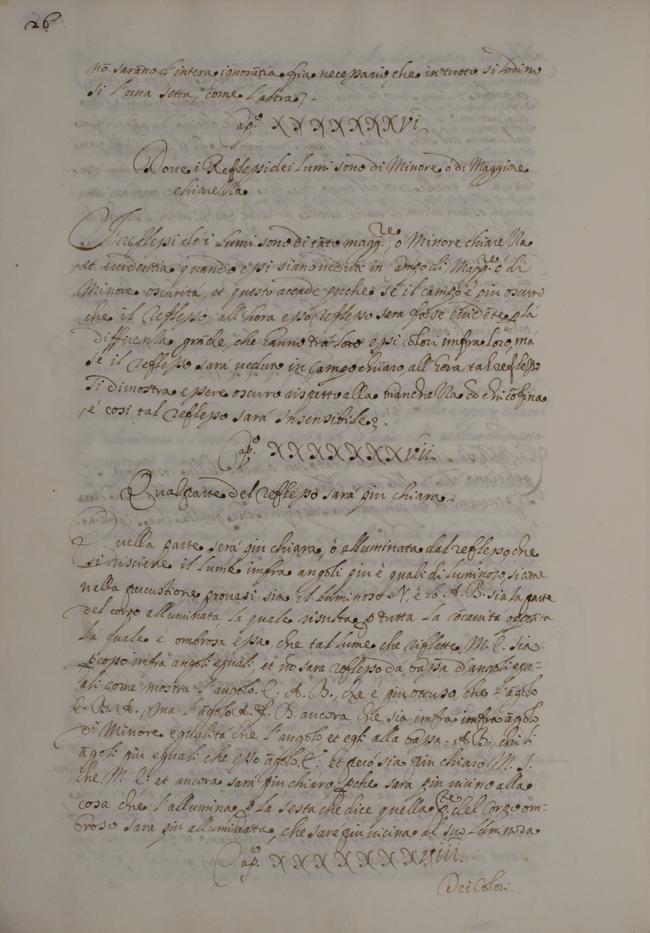 26
nõ sarano d'intera ignorãtia fia necessario che in tutto si lodino
si l'una setta, come l'altra.
Cap.º XXXXXXXVI
Doue i Reflessi dei lumi sono di Minore, o di Maggiore
chiarezza
I reflessi de i lumi sono di tãto magg.re, o Minore chiarezza
et euidentia quando essi siano ueduti in Campo di Magg.re ó di
Minore oscurità, et questo accade perche se il campo é piu oscuro
che il reflesso all'hora esso reflesso sarà forte euidẽte p la
differenza grãde, che hanno tra loro essi colori infra loro, má
se il reflesso sará ueduto in Campo chiaro, all'hora tal reflesso
si dimostra essere oscuro rispetto alla bianchezza cõ chi cõfina,
é cosi tal reflesso sará insensibile.
Cap.º XXXXXXXVII
Qual parte del reflesso sará piu chiara
Quella parte será piu chiara, ó alluminata dal reflesso che
si riceue il lume infra angoli piu equali di luminoso, siane
nella percussione prouasi sia il luminoso N. é lo A. B. sia la parte
del corpo alluminata, la quale risulta p tutta la cõcauità opposita
la quale é ombrosa essa, che tal lume che riflette M. E. sia
pcosso infra angoli equali, et nõ sara reflesso da bassa d'angoli equ-
ali come mostra l'angolo E. A. B. che é piu ottuso, che l'ãgolo
E. B. A. ma l'ãgolo A. F. B. ancora che sia infra infra ãgolo
di Minore equalità che l'angolo et egli alla bassa A B. chi i
ãgoli piu equali che esso ãgolo E. et pero sia piu chiaro M. J.
che M. E. et ancora sara piu chiaro pche sara piu uicino alla
cosa che l'allumina p la sesta che dice quella p.te del Corpo om-
broso sara piu alluminata, che sara piu uicina al suo luminoso
Cap.º XXXXXXXVIII
Dei Colori